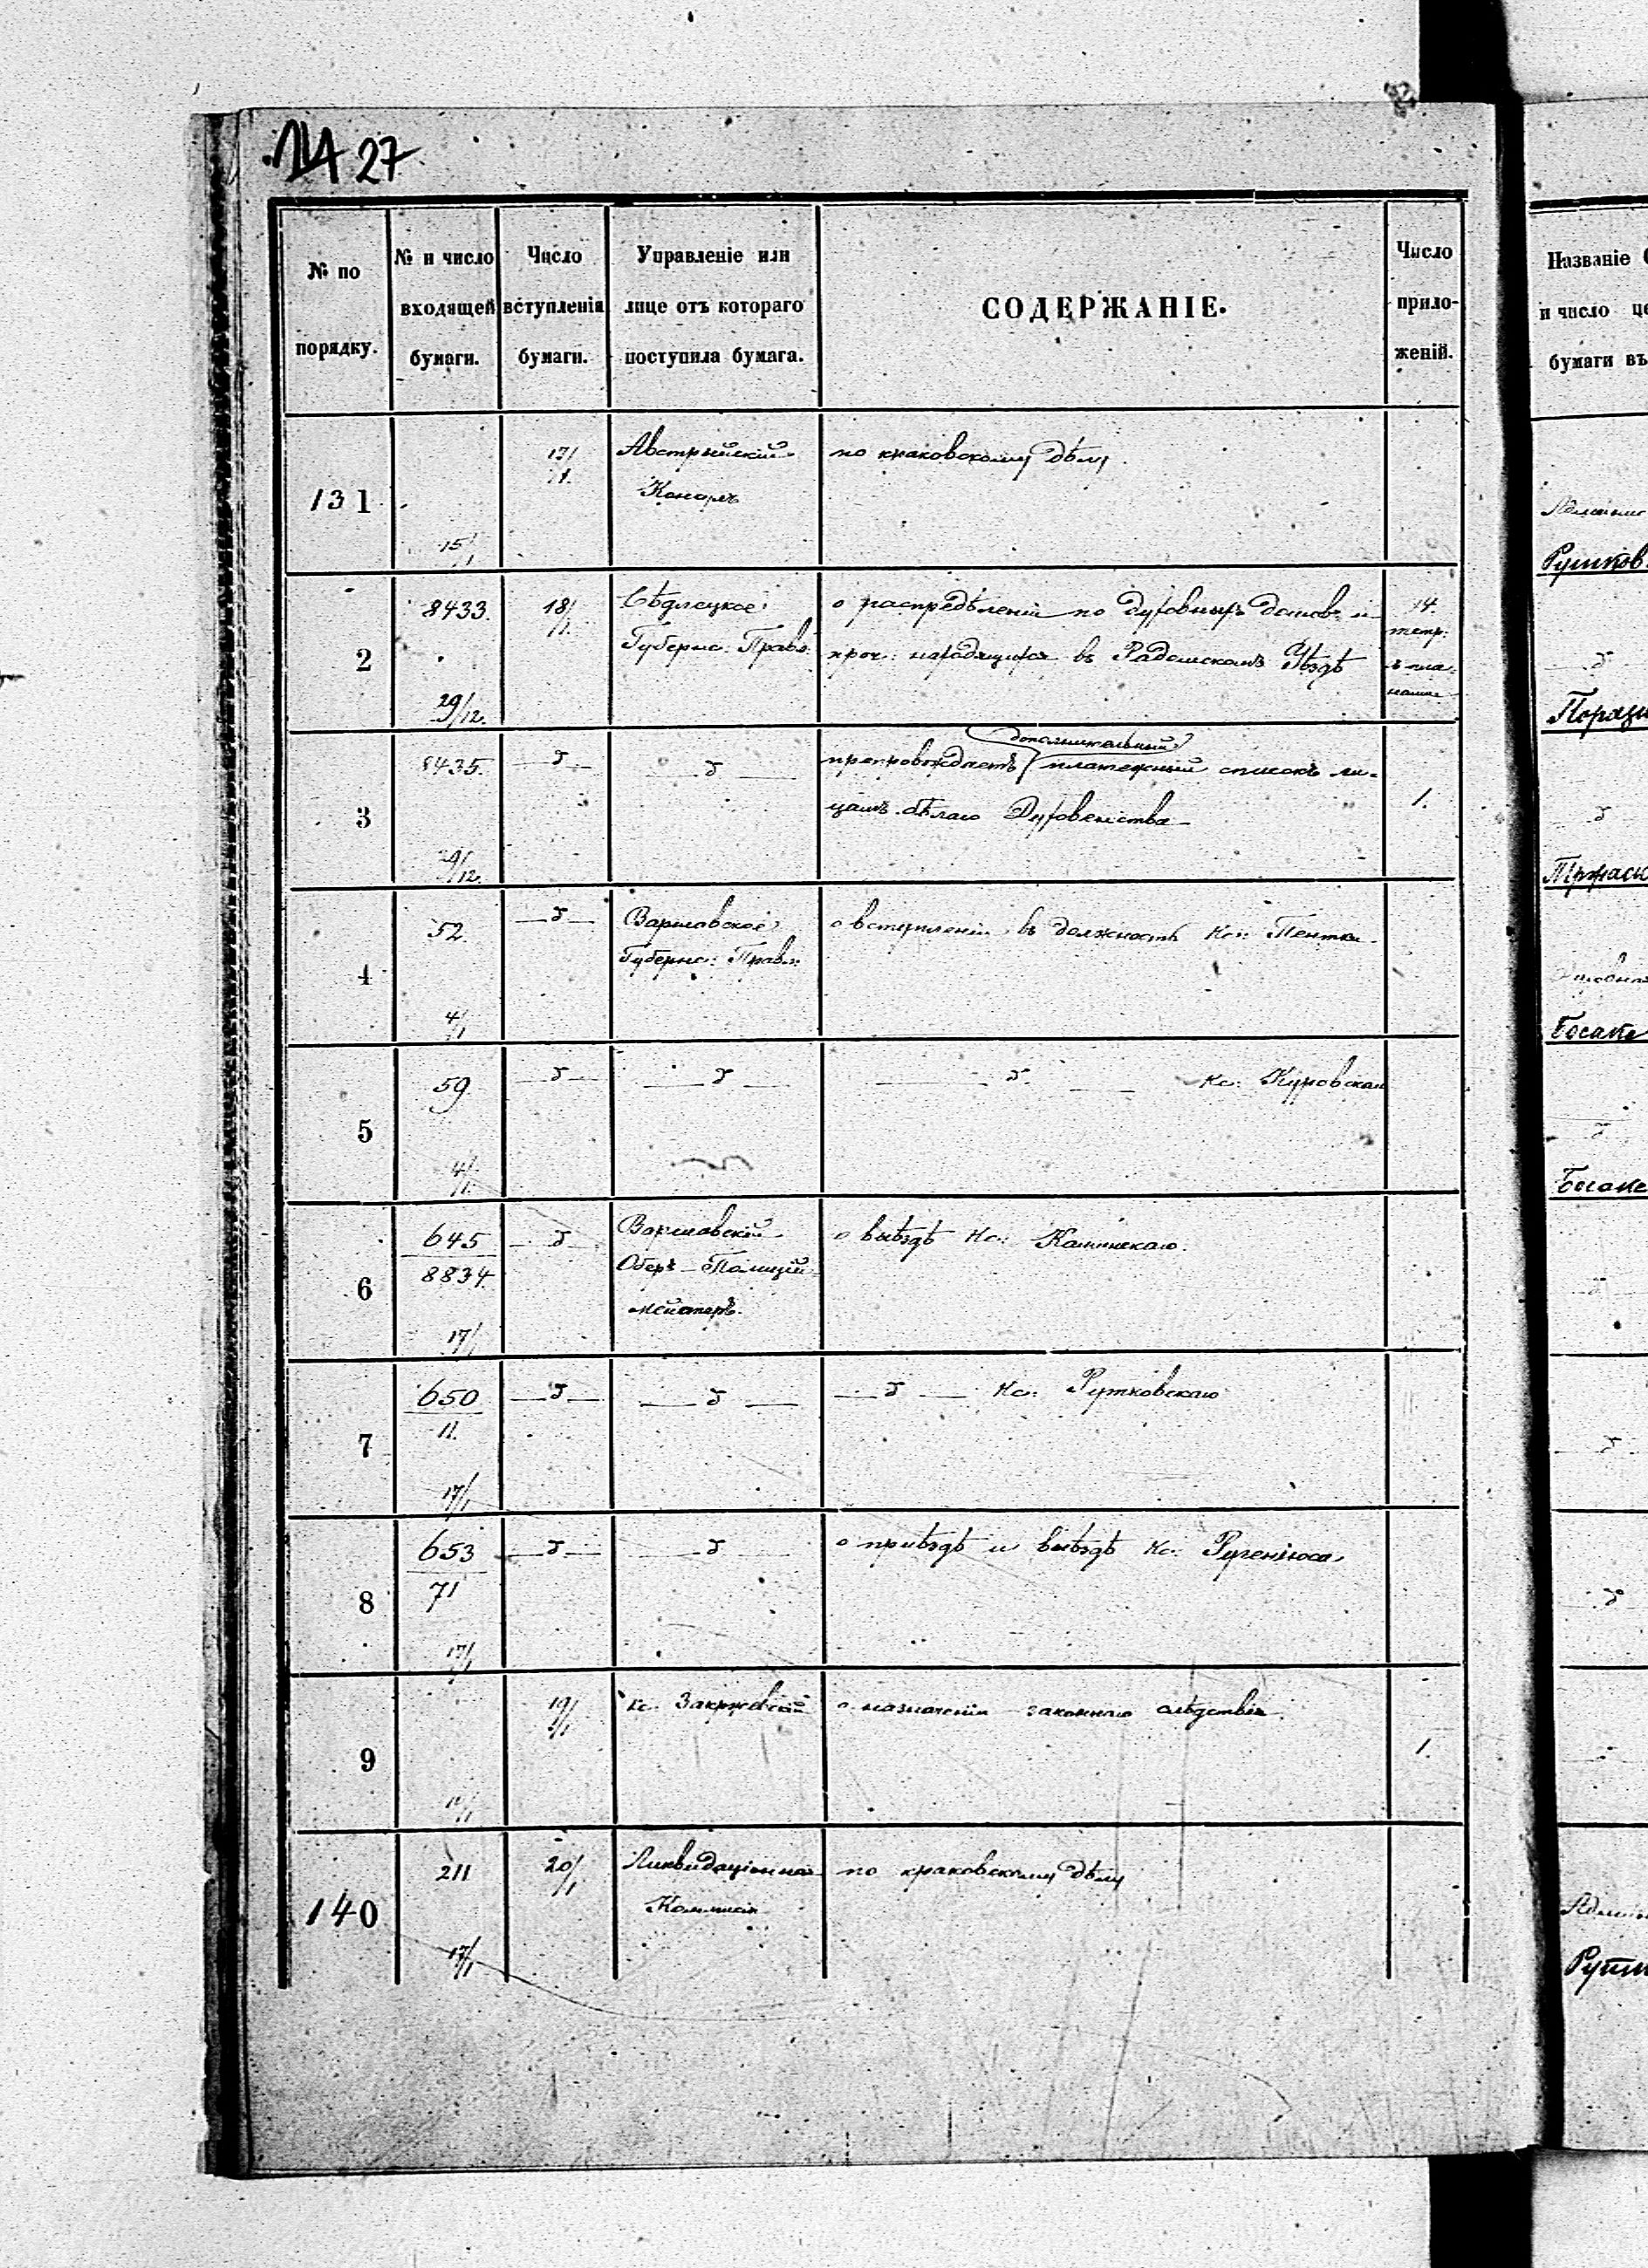 27
№ по порядку.
№ и число входящей бумаги.
Число вступленія бумаги.
Управленіе или лице отъ котораго поступила бумага.
СОДЕРЖАНІЕ.
Число прило-женій.
131
15/1
17/1
Австрійскій
Консулъ
по краковскому дѣлу.
2
8433.
29/12.
18/1.
Сѣдлецкое
Губернс: Правл:
о распредѣленіи по духовнымъ домовъ и
проч: находящихся въ Радомскомъ Уѣздѣ
14.
тетр:
3
8435.
29/12.
—д—
—д—
дополнительный
препровождаетъ платежный списокъ ли-
цамъ бѣлаго Духовенства
1.
4
52.
4/1
—д—
Варшавское
Губернс: Правл:
о вступленіи въ должность Кс: Пентка.
5
59.
4/1.
—д—
—д—
—д— Кс: Куровскаго
6
645
8834.
17/1
—д—
Варшавскій
Оберъ-Полицій-
мейстеръ.
о выѣздѣ Кс: Каминскаго.
7
650
11.
17/1
—д—
—д—
—д— Кс: Рутковскаго
8
653
71
17/1
—д—
—д—
о пріѣздѣ и выѣздѣ Кс: Ругеніюса
9
19/1
Кс. Закржевскій
о назначеніи законнаго слѣдствія.
1.
140
211
17/1
20/1
Ликвидаціонная
Коммисія
по краковскому дѣлу
Названіе
и число
бумаги въ
—д—
—д—
—д—
—д—
—д—